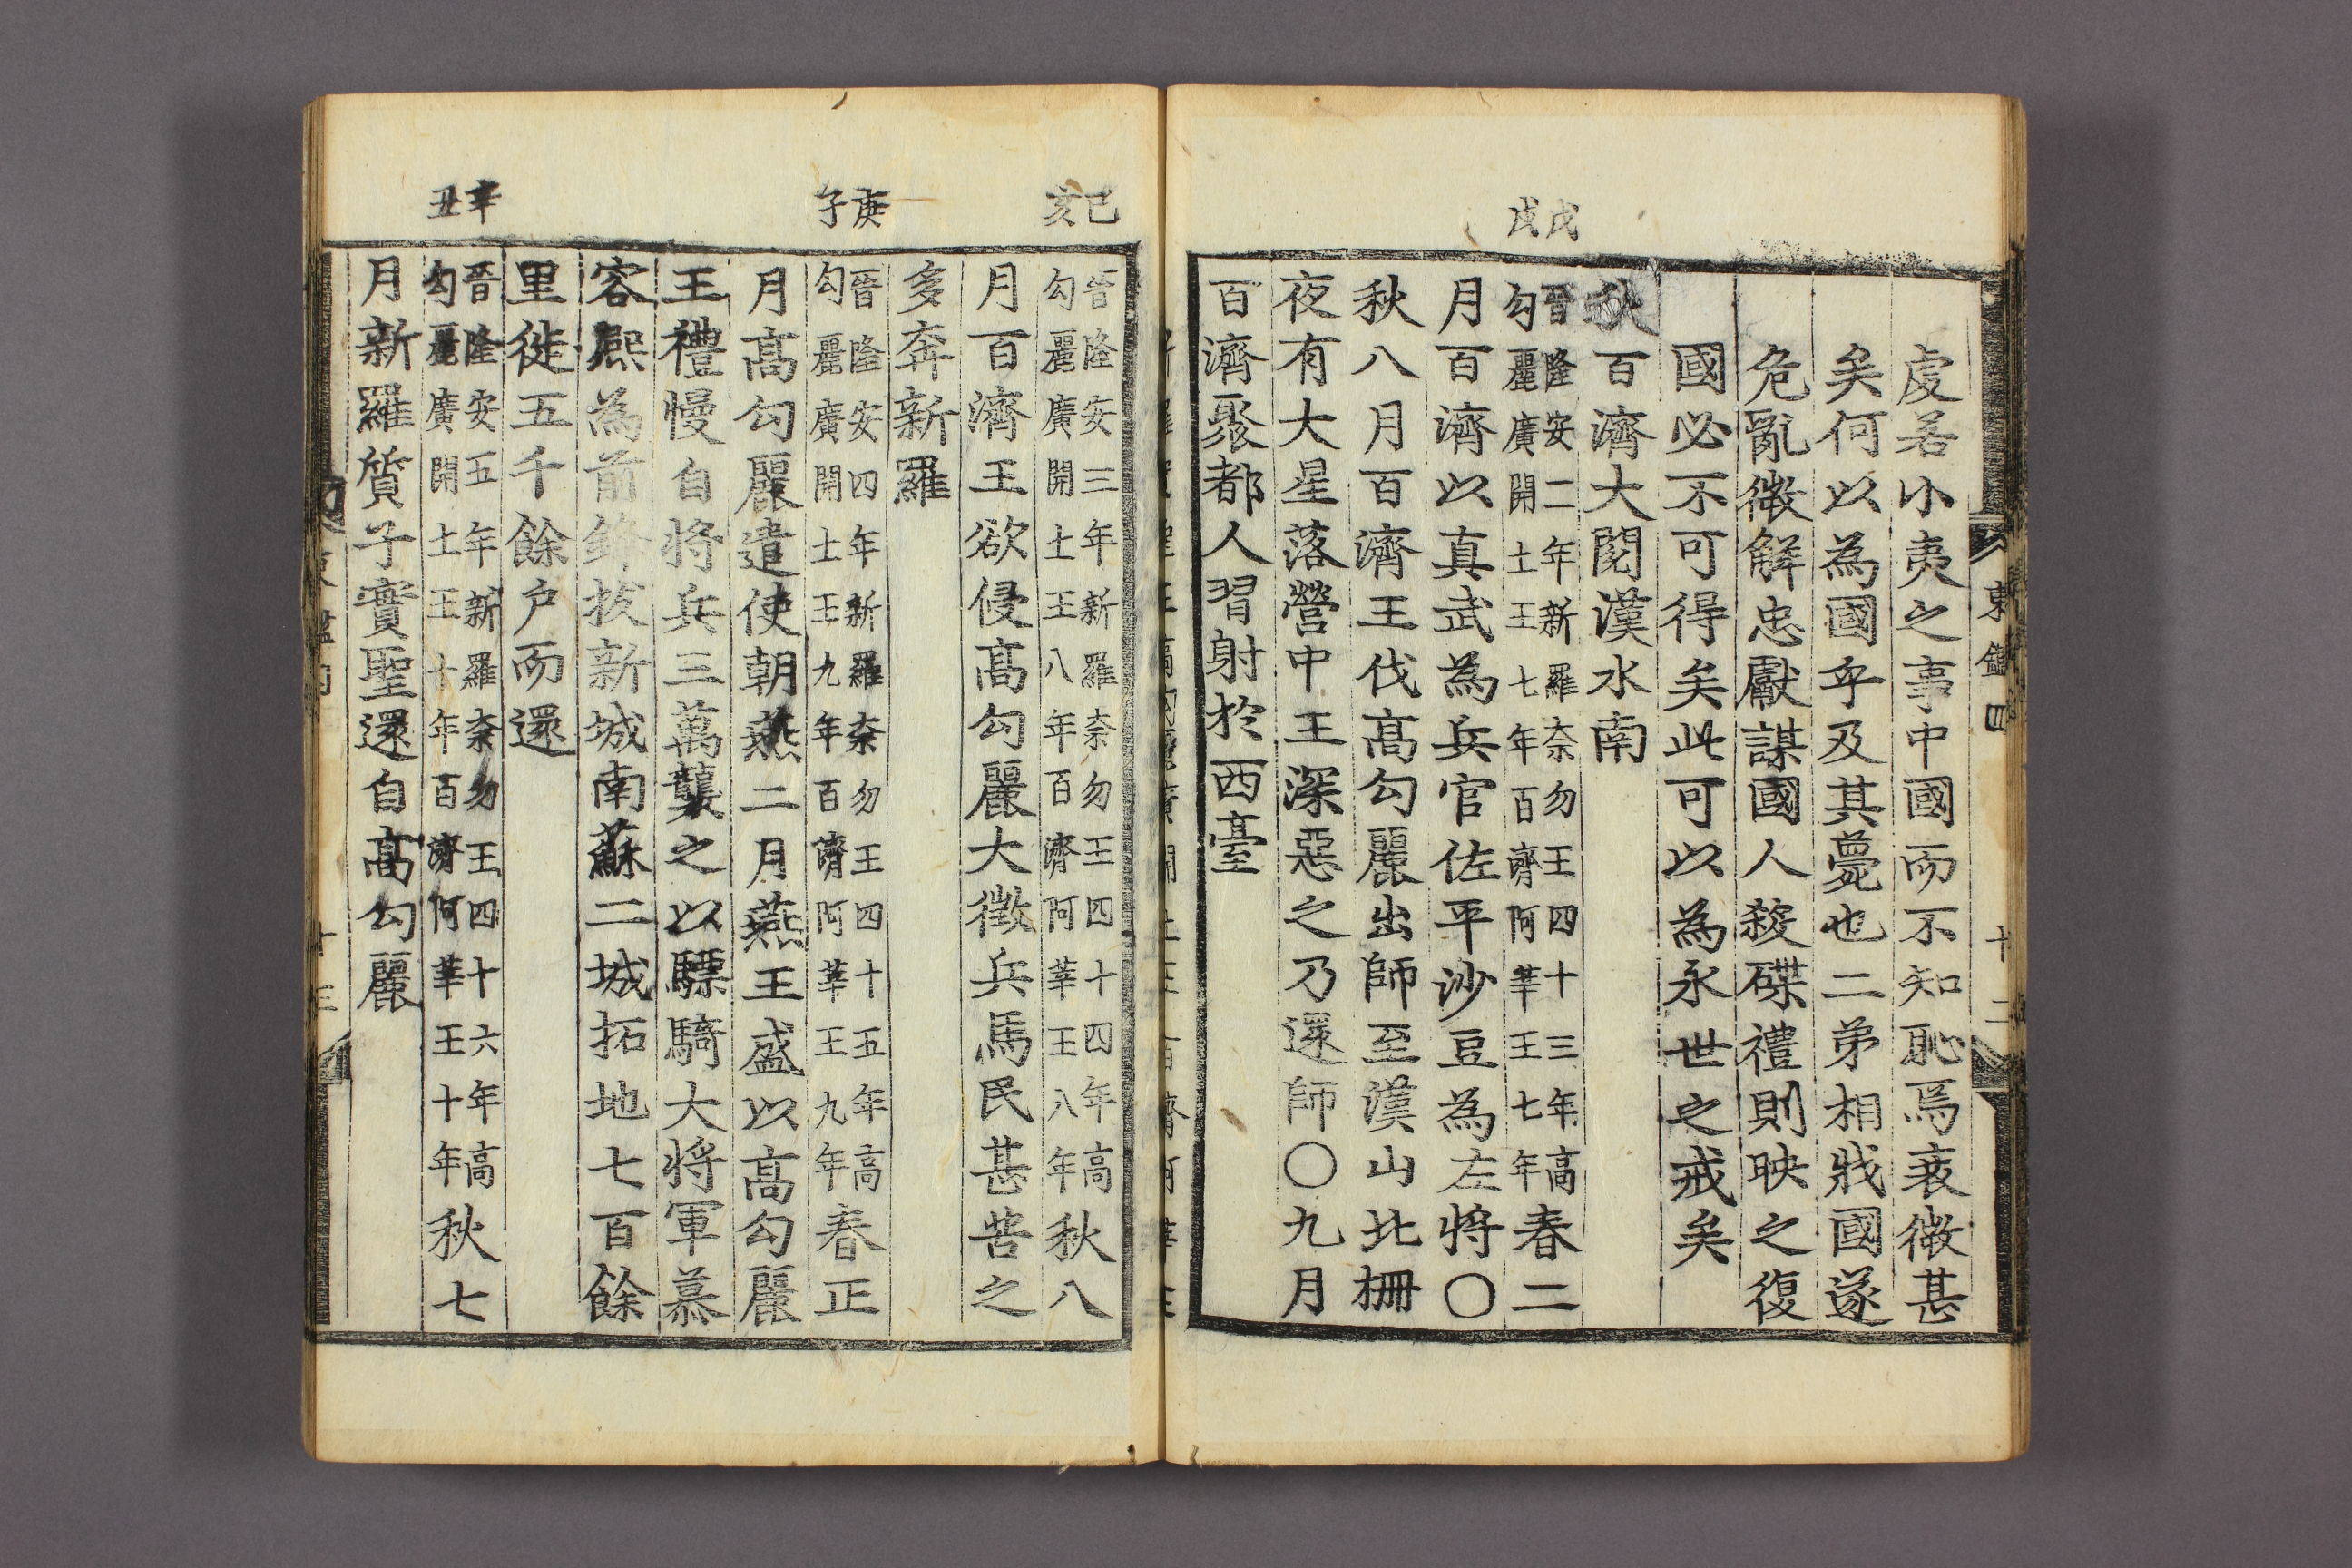 東鑑四 十二
虔若小夷之事中國而不知恥焉衰微甚
矣何以為國乎及其薨也二弟相戕國遂
危亂微解忠獻謀國人殺磔禮則映之復
國必不可得矣此可以為永世之戒矣
秋百濟大閱漢水南
戊戌
晉隆安二年新羅奈勿王四十三年高
勾麗廣開土王七年百濟阿莘王七年春二
月百濟以真武為兵官佐平沙豆為左將〇
秋八月百濟王伐高勾麗出師至漢山北柵
夜有大星落營中王深惡之乃還師〇九月
百濟聚都人習射於西臺
己亥
晉隆安三年新羅奈勿王四十四年高
勾麗廣開土王八年百濟阿莘王八年秋八
月百濟王欲侵高勾麗大徵兵馬民甚苦之
多奔新羅
庚子
晉隆安四年新羅奈勿王四十五年高
勾麗廣開土王九年百濟阿莘王九年春正
月高勾麗遣使朝燕二月燕王盛以高勾麗
王禮慢自將兵三萬襲之以驃騎大將軍慕
容熙為前鋒拔新城南蘇二城拓地七百餘
里徙五千餘戶而還
辛丑
晉隆安五年新羅奈勿王四十六年高
勾麗廣開土王十年百濟阿莘王十年秋七
月新羅質子實聖還自高勾麗